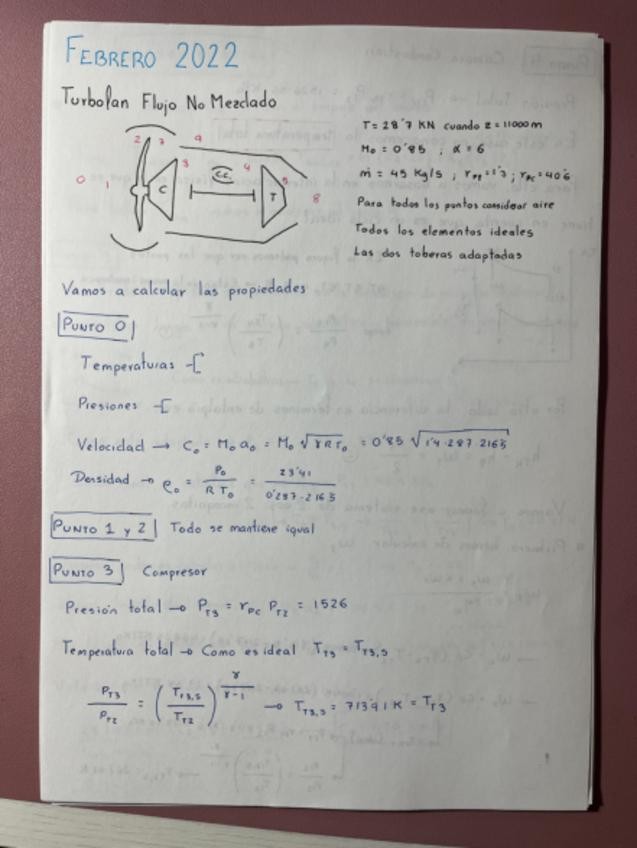 FEBRERO 2022
Turbofan Flujo No Mezclado
T = 28'7 KN cuando z = 11000 m
M₀ = 0'85 ; α = 6
ṁ = 45 Kg/s ;
Para todos los puntos considerar aire
Todos los elementos ideales
Las dos toberas adaptadas
0 1 2 3 9 3 4 5 8
C C.C. T
Vamos a calcular las propiedades
PUNTO 0
Temperaturas -[
Presiones -[
Velocidad → C₀ = M₀ a₀ = M₀ √(γRT₀) = 0'85 √(1'4·287·216'5)
Densidad → ρ₀ = P₀ / (R T₀) = 23'41 / (0'287·216'5)
PUNTO 1 y 2 Todo se mantiene igual
PUNTO 3 Compresor
Presión total → P_T3 = r_PC P_T2 = 1526
Temperatura total → Como es ideal T_T3 = T_T3,s
P_T3 / P_T2 = (T_T3,s / T_T2)^(γ/(γ-1)) → T_T3,s = 713'91 K = T_T3